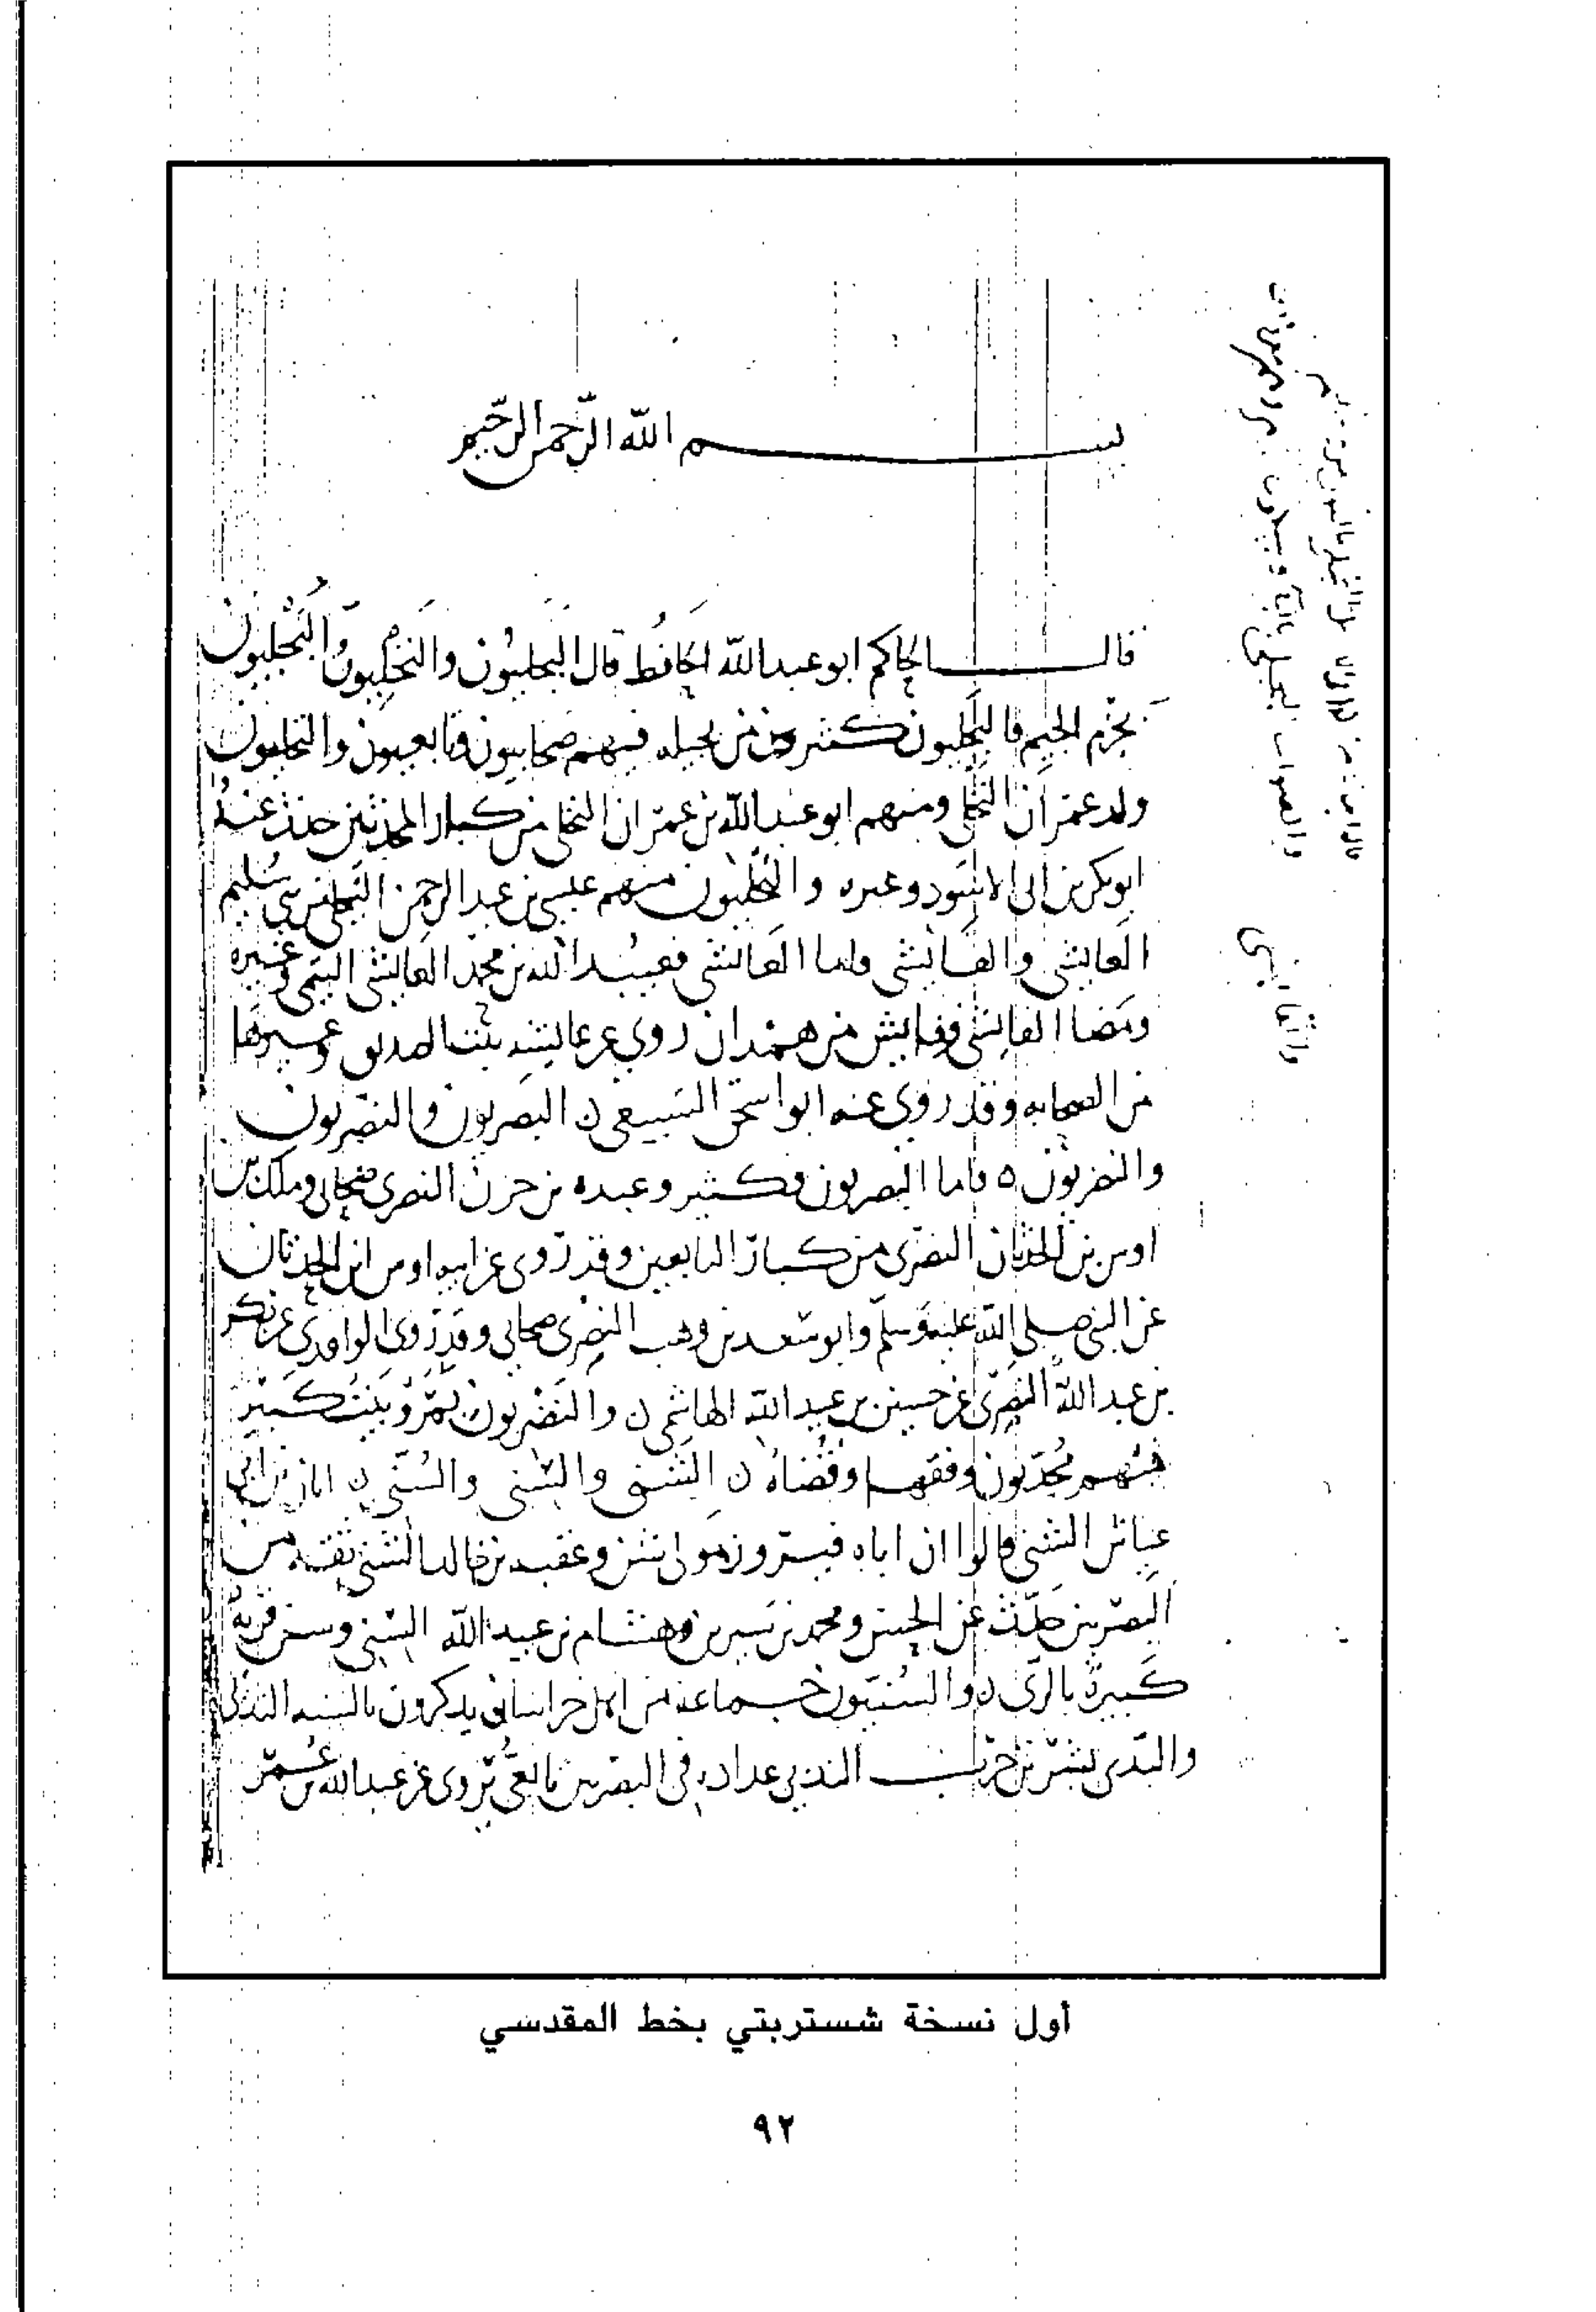 بسم الله الرحمن الرحيم
قال الحاكم ابو عبد الله الحافظ قال البجليون والنخليون والبجليون
بجزم الجيم فالبجليون كثيرون من بجيله فمنهم صحابيون وتابعيون والنخليون
ولد عمران النخلي ومنهم ابو عبد الله بن عمران النخلي من كبار المحدثين حدث عنه
ابو بكر بن ابي الاسود وغيره والبجليون منهم عيسى بن عبد الرحمن البجلي من بني سليم
العايشي والفايشي واما العايشي فعبيد الله بن محمد العايشي التيمي وغيره
ومضا الفايشي وفايش من همدان روى عن عايشه بنت الصديق وغيرها
من الصحابه وقد روى عنه ابو اسحق السبيعي ن البصريون والنصريون
والنضريون ه فاما البصريون فكثير وعبده بن حزن النصري صحابي وملك بن
اوس بن الحدثان النصري من كبار التابعين وقد روى عن ابيه اوس ابن الحدثان
عن النبي صلى الله عليه وسلم وابو سعد بن وهب النضري صحابي وقد روى الواقدي عن بكر
بن عبد الله النضري عن حسين بن عبد الله الهاشمي ن والنضريون بمرو بيت كبير
فمنهم محدثون وفقها وقضاة ن الشني والسني والسني ن ابان بن ابي
عياش الشني قالوا ان اباه فيروز مولى شن وعقبه بن خالد الشني ثقه من
البصريين حدث عن الحسن ومحمد بن سيرين وهشام بن عبيد الله السني وسن قرية
كبيرة بالري ن والسنيون جماعة من اهل خراسان يذكرون بالسنه الندبي
والبدي بشر بن حرب الندبي عداده في البصريين تابعي يروى عن عبد الله بن عمر
والصواب البجلي
أول نسخة شستربتي بخط المقدسي
٩٢